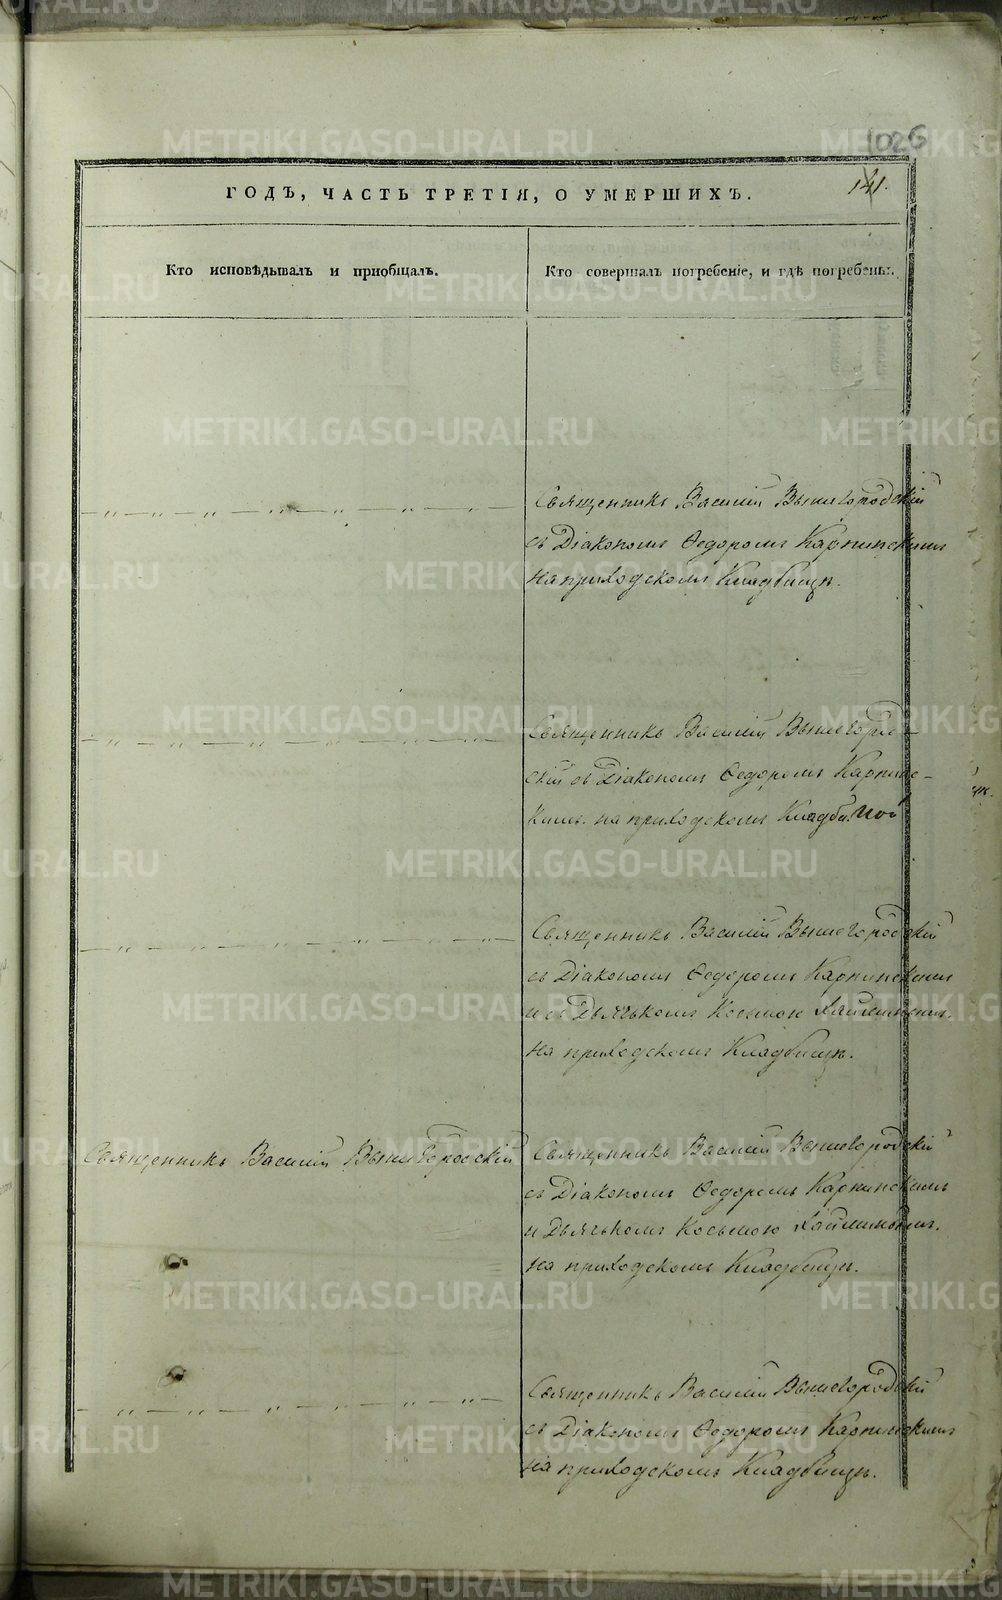 1026
141.
ГОДЪ, ЧАСТЬ ТРЕТІЯ, О УМЕРШИХЪ.
Кто исповѣдывалъ и приобщалъ.
Кто совершалъ погребеніе, и гдѣ погребены.
Священникъ Василій Вышегородскій
съ Діакономъ Ѳедоромъ Карпинскимъ
на приходскомъ Кладбищѣ.
Священникъ Василій Вышегород-
скій съ Діакономъ Ѳедоромъ Карпинс-
кимъ. на приходскомъ
Священникъ Василій Вышегородскій
съ Діакономъ Ѳедоромъ Карпинскимъ
и съ Дьячькомъ Косьмою
на приходскомъ Кладбищѣ.
Священникъ Василій Вышегородскій
Священникъ Василій Вышегородскій
съ Діакономъ Ѳедоромъ Карпинскимъ
и Дьячькомъ Косьмою
на приходскомъ Кладбищѣ.
Священникъ Василій Вышегородскій
съ Діакономъ Ѳедоромъ Карпинскимъ
на приходскомъ Кладбищѣ.
METRIKI.GASO-URAL.RU